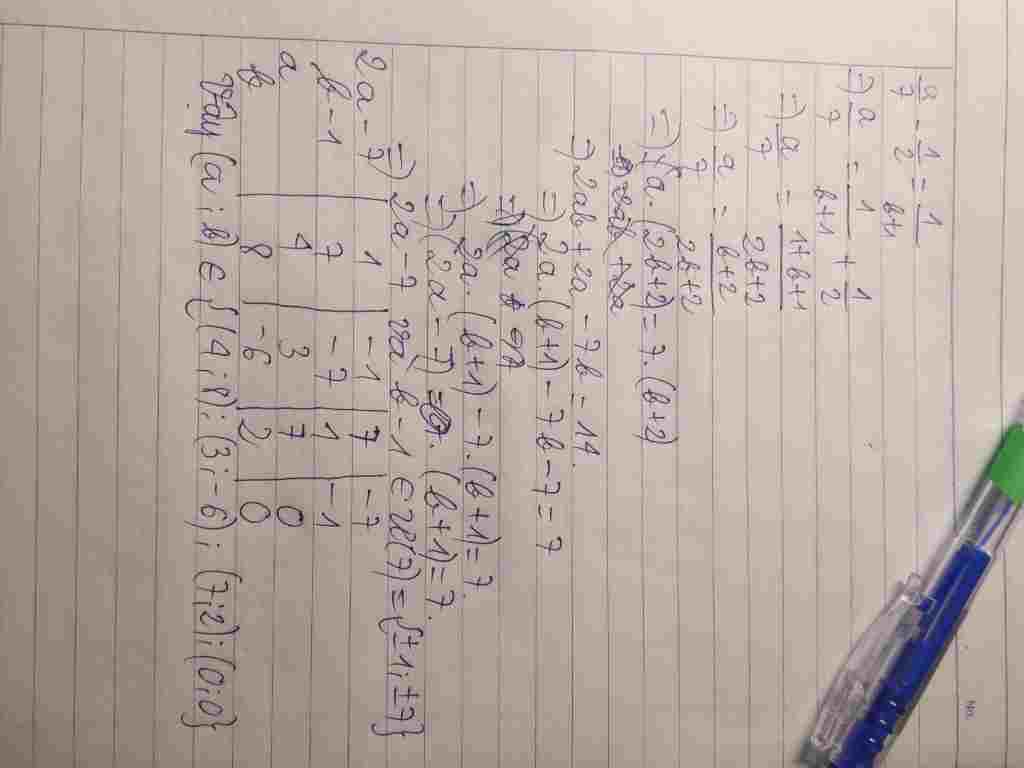 a/7 - 1/2 = 1/b+1
=) a/7 = 1/b+1 + 1/2
=) a/7 = 1+b+1/2b+2
=) a/7 = b+2/2b+2
=) a.(2b+2) = 7.(b+2)
=) 2ab + 2a - 7b = 14.
=) 2a.(b+1) - 7b - 7 = 7
=) 2a.(b+1) - 7.(b+1) = 7.
=) (2a - 7) . (b+1) = 7.
=) 2a - 7 và b - 1 ∈ Ư(7) = {±1; ±7}
2a - 7 1 -1 7 -7
b - 1 7 -7 1 -1
a 4 3 7 0
b 8 -6 2 0
Vậy (a; b) ∈ {(4; 8); (3; -6); (7; 2); (0; 0)}